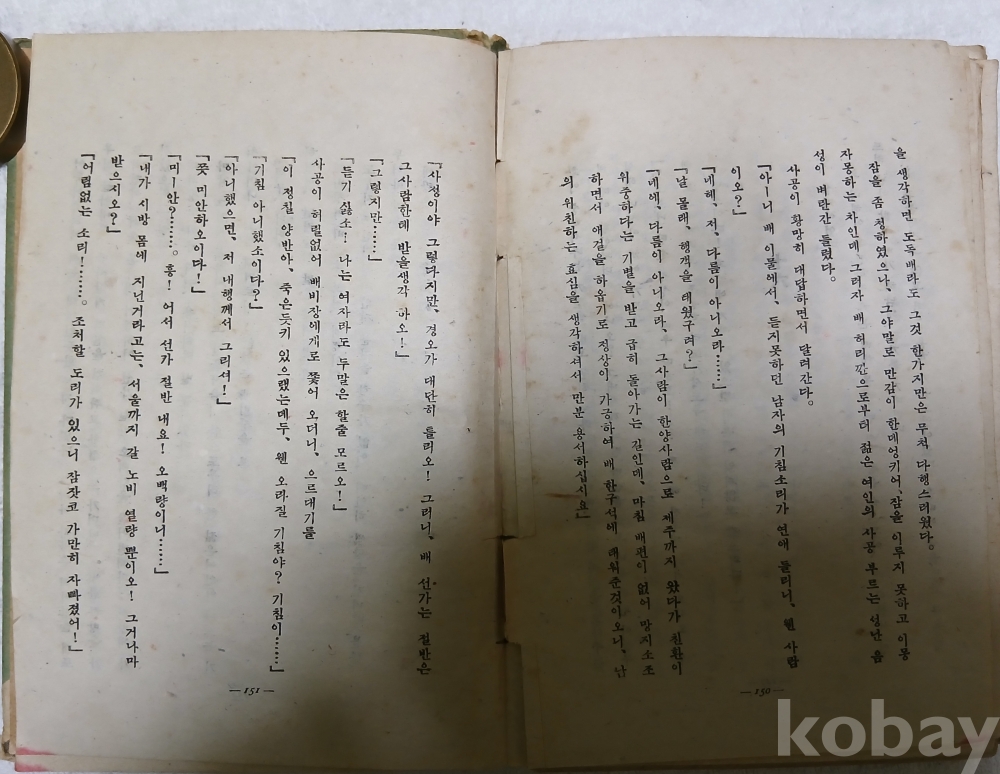 을 생각하면 도독배라도 그것 한가지만은 무척 다행스러웠다。
잠을 좀 청하였으나、그야말로 만감이 한데엉키어、잠을 이루지 못하고 이몽
자몽하는 차인데 그러자 배 허리깐으로부터 젊은 여인의 사공 부르는 성난 음
성이 벼란간 들렸다。
사공이 황망히 대답하면서 달려간다。
「아ー니 배 이물에서、듣지못하던 남자의 기침소리가 연애 들리니、웬 사람
이오?」
「네헤、저、다름이 아니오라……」
「날 몰래、행객을 태웠구려?」
「네에、다름이 아니오라、그사람이 한양사람으로 제주까지 왔다가 친환이
위중하다는 기별을 받고 급히 돌아가는 길인데、마침 배편이 없어 망지소조
하면서 애걸을 하옵기로 정상이 가긍하여 배 한구석에 태워준것이오니、남
의 위친하는 효심을 생각하셔서 만분 용서하십시요」
— 150 —
「사정이야 그렇다지만、경오가 대단히 틀리오! 그러니、배 선가는 절반은
그사람한테 받을생각 하오!」
「그렇지만……」
「듣기 싫소! 나는 여자라도 두말은 할줄 모르오!」
사공이 허릴없어 배비장에게로 쫓어 오더니、으르대기를
「이 정칠 양반아、죽은듯키 있으랬는데두、웬 오라질 기침야? 기침이……」
「기침 아니했소이다?」
「아니했으면、저 내행께서 그리셔!」
「쯧 미안하오이다!」
「미ー안?……。흥! 어서 선가 절반 내요! 오백량이니……」
「내가 시방 몸에 지닌거라고는、서울까지 갈 노비 열량 뿐이오! 그거나마
받으시오?」
「어림없는 소리!……。조처할 도리가 있으니 잠잣고 가만히 자빠졌어!」
— 151 —
kobay